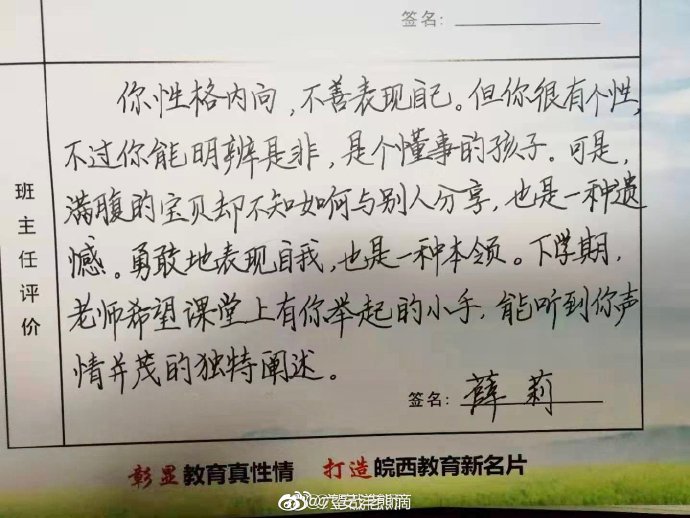 签名：
班主任评价
你性格内向，不善表现自己。但你很有个性，
不过你能明辨是非，是个懂事的孩子。可是，
满腹的宝贝却不知如何与别人分享，也是一种遗
憾。勇敢地表现自我，也是一种本领。下学期，
老师希望课堂上有你举起的小手，能听到你声
情并茂的独特阐述。
签名：薛莉
彰显教育真性情 打造皖西教育新名片